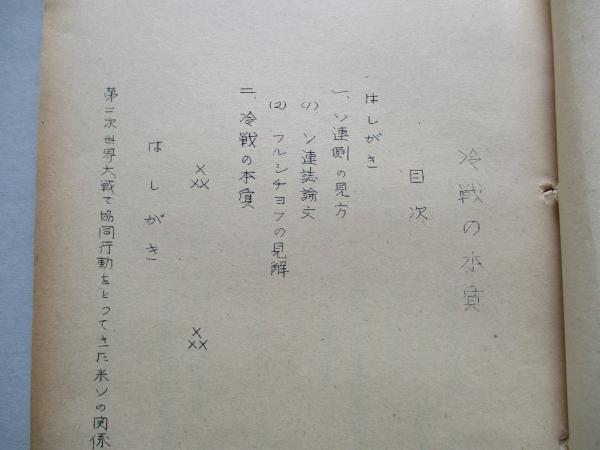 冷戦の本質
目次
はしがき
一、ソ連側の見方
(1) ソ連誌論文
(2) フルシチョフの見解
二、冷戦の本質
× ××
× ××
はしがき
第二次世界大戦で協同行動をとつてきた米ソの関係